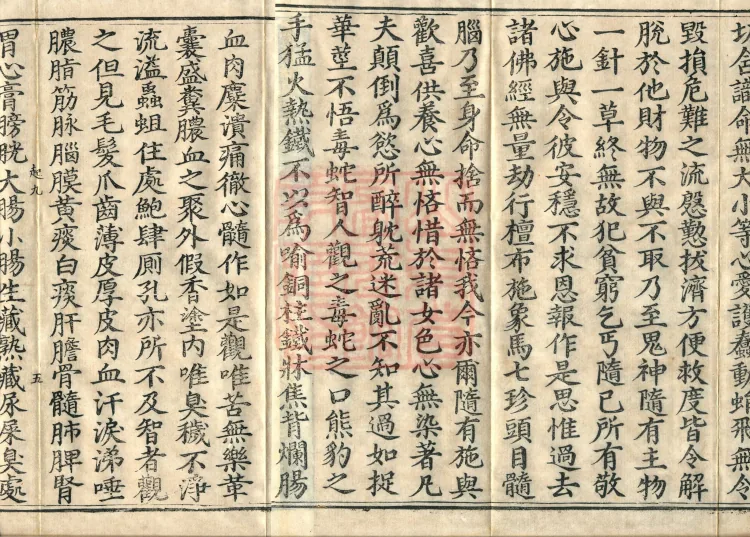 切含識命無大小等心愛護蠢動蜎飛無令
毀損危難之流慇懃拔濟方便救度皆令解
脫於他財物不與不取乃至鬼神隨有主物
一針一草終無故犯貧窮乞丐隨己所有敬
心施與令彼安穩不求恩報作是思惟過去
諸佛經無量劫行檀布施象馬七珍頭目髓
腦乃至身命捨而無悋我今亦爾隨有施與
歡喜供養心無悋惜於諸女色心無染著凡
夫顛倒為慾所醉躭荒迷亂不知其過如捉
華莖不悟毒蛇智人觀之毒蛇之口熊豹之
手猛火熱鐵不以為喻銅柱鐵牀焦背爛腸
血肉麋潰痛徹心髓作如是觀唯苦無樂革
囊盛糞膿血之聚外假香塗內唯臭穢不淨
流溢蟲蛆住處鮑肆厠孔亦所不及智者觀
之但見毛髮爪齒薄皮厚皮肉血汗淚涕唾
膿脂筋脉腦膜黃痰白痰肝膽骨髓肺脾腎
起九 五
胃心膏膀胱大腸小腸生藏熟藏尿屎臭處